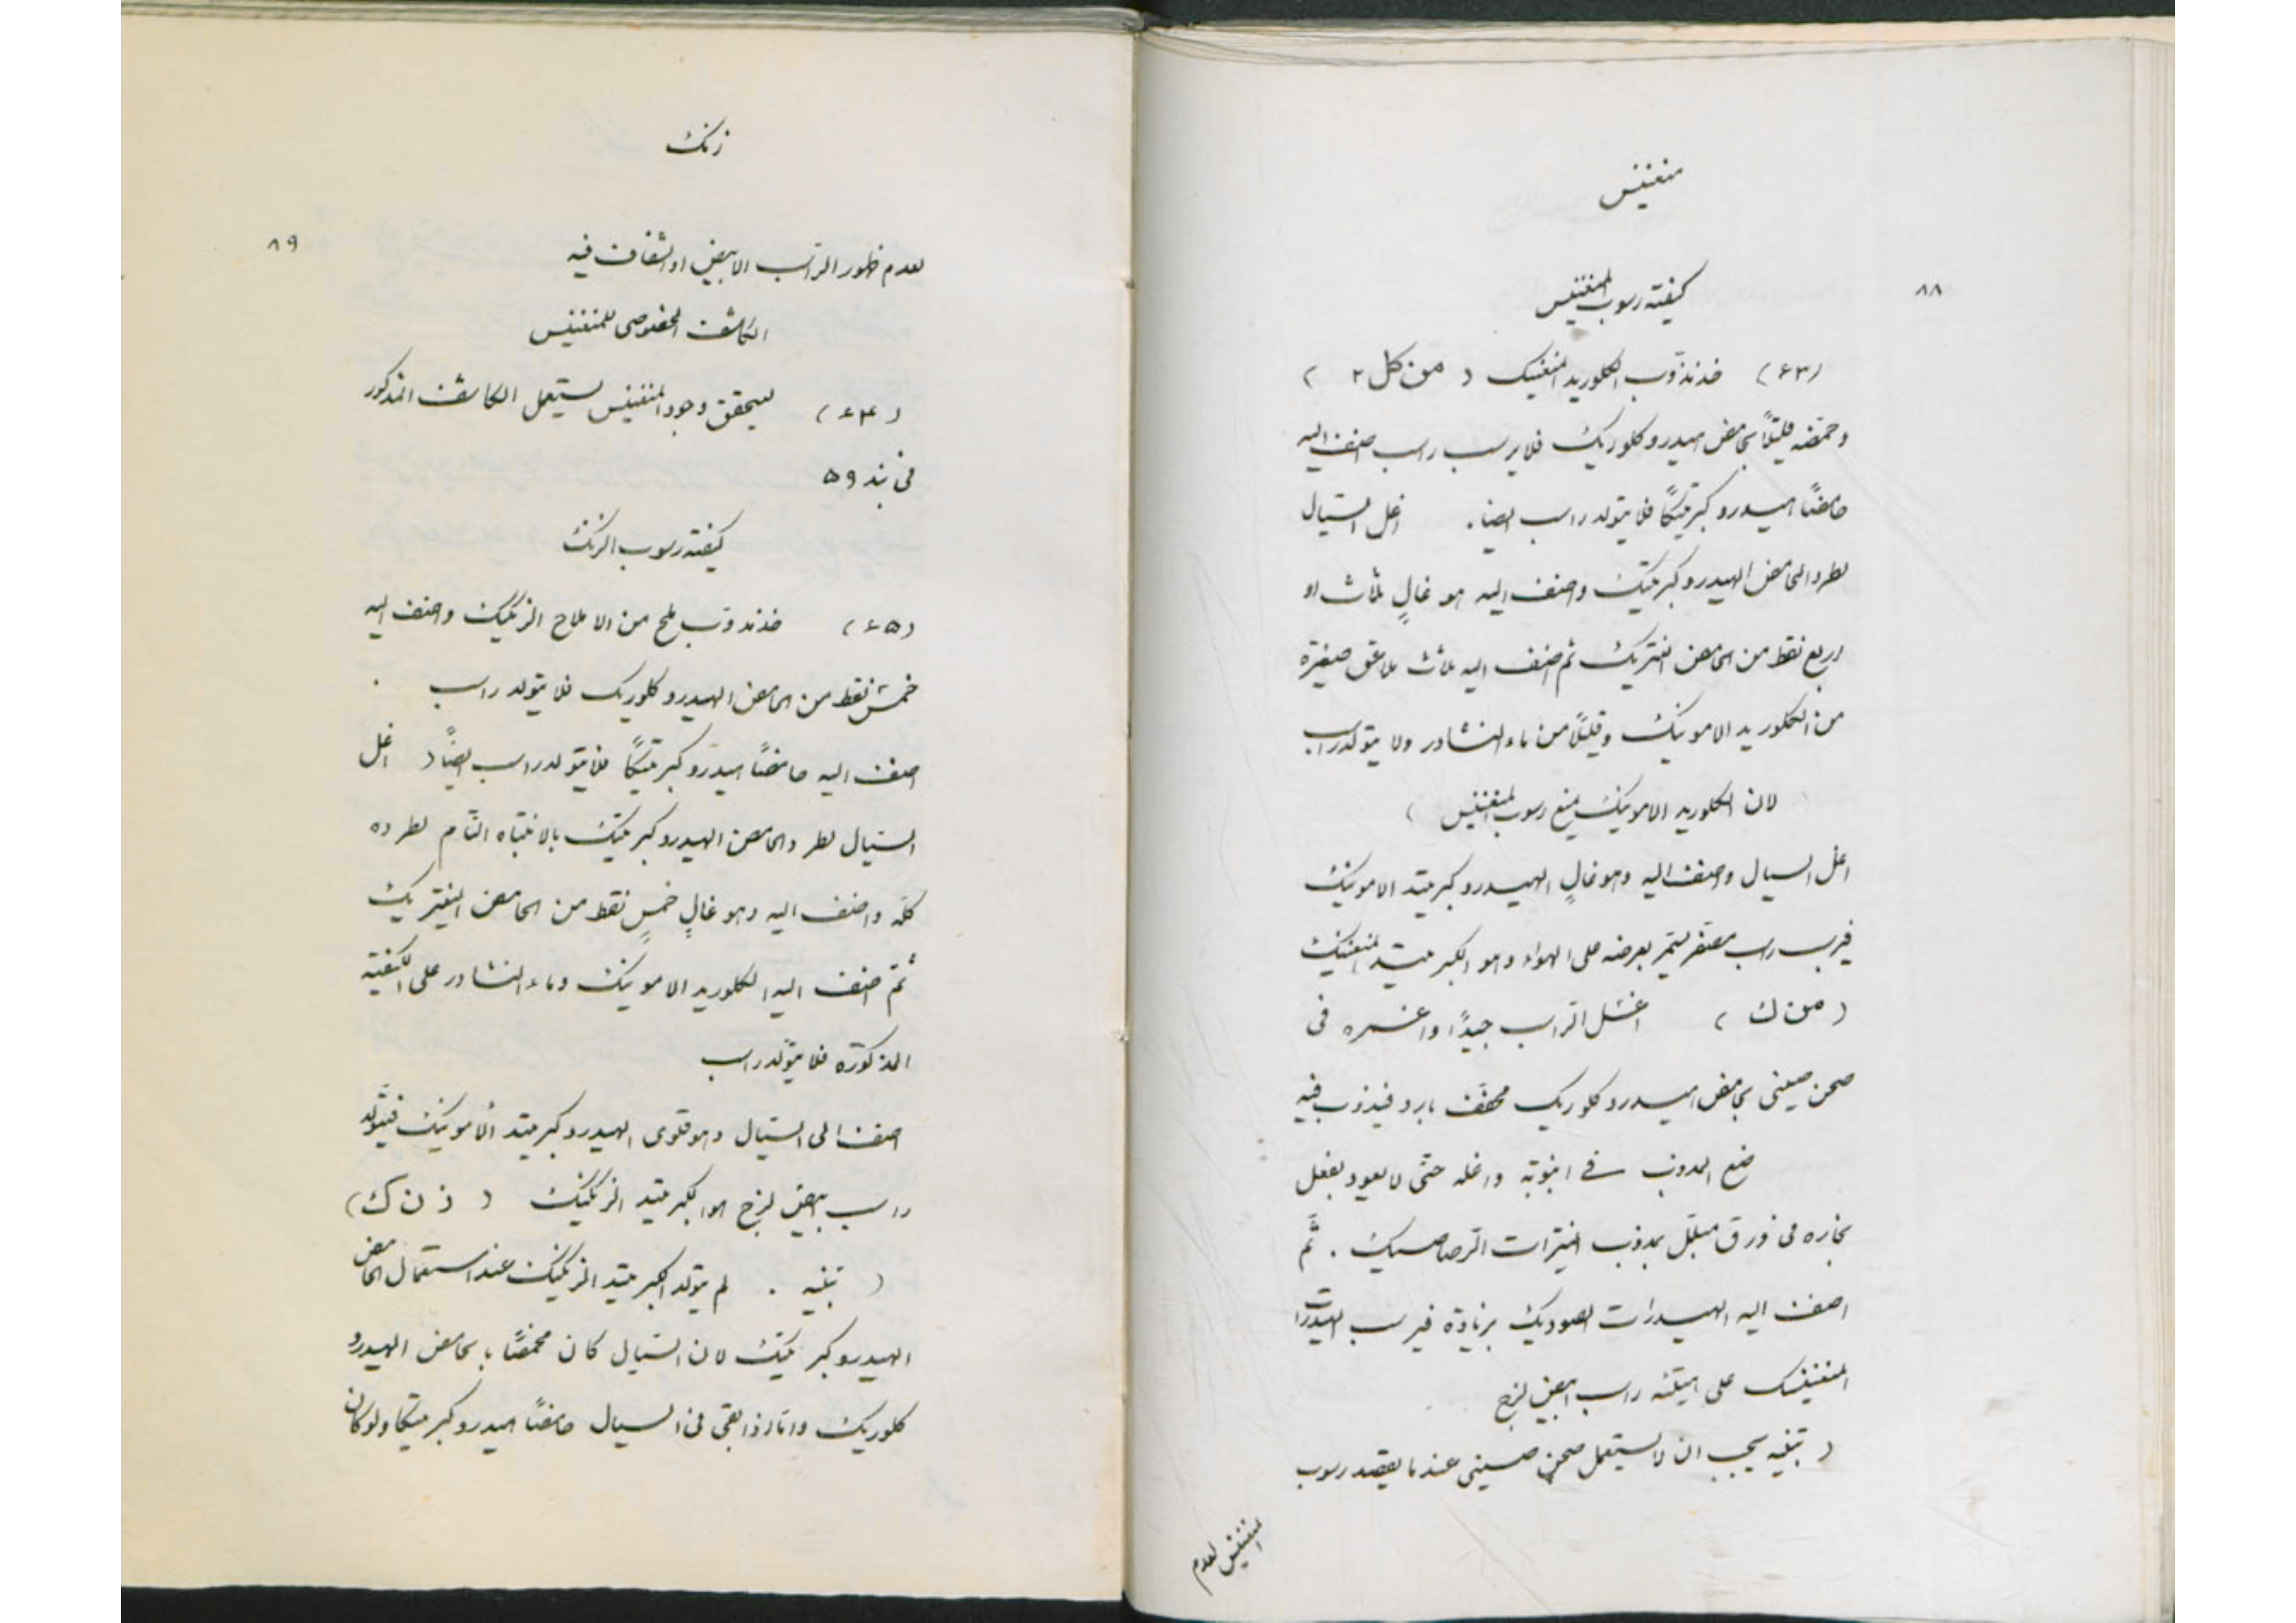 منغنيس
٨٨
كيفية رسوب المنغنيس
(٦٣) خذ مذوّب الكلوريد المنغنيك ( من كل ٢ )
وحمّضه قليلاً بحامض هيدروكلوريك فلا يرسب راسب اضف اليه
حامضاً هيدروكبريتيكاً فلا يتولد راسب ايضاً . اغل السيال
لطرد الحامض الهيدروكبريتيك واضف اليه وهو غالٍ ثلاث او
اربع نقط من الحامض النيتريك ثم اضف اليه ثلاث ملاعق صغيرة
من الكلوريد الامونيك وقليلاً من ماء النشادر ولا يتولد راسب
لان الكلوريد الامونيك يمنع رسوب المنغنيس )
اغل السيال واضف اليه وهو غالٍ الهيدروكبريتيد الامونيك
فيرسب راسب مصفر يسمرّ بعرضه على الهواء وهو الكبريتيد المنغنيك
( من ك ) اغسل الراسب جيداً واغمره فى
صحن صينى بحامض هيدروكلوريك مخفف بارد فيذوب فيه
ضع المذوب فى انبوبة واغله حتى لا يعود يفعل
بخاره فى ورق مبلّل بمذوب النيترات الرصاصيك . ثمّ
اضف اليه الهيدرات الصوديك بزيادة فيرسب الهيدرات
المنغنيسك على هيئة راسب ابيض لزج
( تنبيه يجب ان لا يستعمل صحن صينى عندما يقصد رسوب
المنغنيس لعدم
زنك
٨٩
لعدم ظهور الراسب الابيض او الشفاف فيه
الكاشف الخصوصى للمنغنيس
(٦٤) ليتحقق وجود المنغنيس يستعمل الكاشف المذكور
فى بند ٥٩
كيفية رسوب الزنك
(٦٥) خذ مذوّب ملح من الاملاح الزنكيك واضف اليه
خمس نقط من الحامض الهيدروكلوريك فلا يتولد راسب .
اضف اليه حامضاً هيدروكبريتيكاً فلا يتولد راسب ايضاً ( اغل
السيال لطرد الحامض الهيدروكبريتيك بالانتباه التام لطرده
كلّه واضف اليه وهو غالٍ خمس نقط من الحامض النيتريك
ثمّ اضف اليه الكلوريد الامونيك وماء النشادر على الكيفية
المذكورة فلا يتولّد راسب
اضف الى السيال وهو قلوى الهيدروكبريتيد الأمونيك فيتولّد
راسب ابيض لزج هو الكبريتيد الزنكيك ( ز ن ك )
( تنبيه . لم يتولد الكبريتيد الزنكيك عند استعمال الحامض
الهيدروكبريتيك لان السيال كان محمضاً بالحامض الهيدرو
كلوريك واما اذا بقى فى السيال حامضاً هيدروكبريتيكا ولو كان